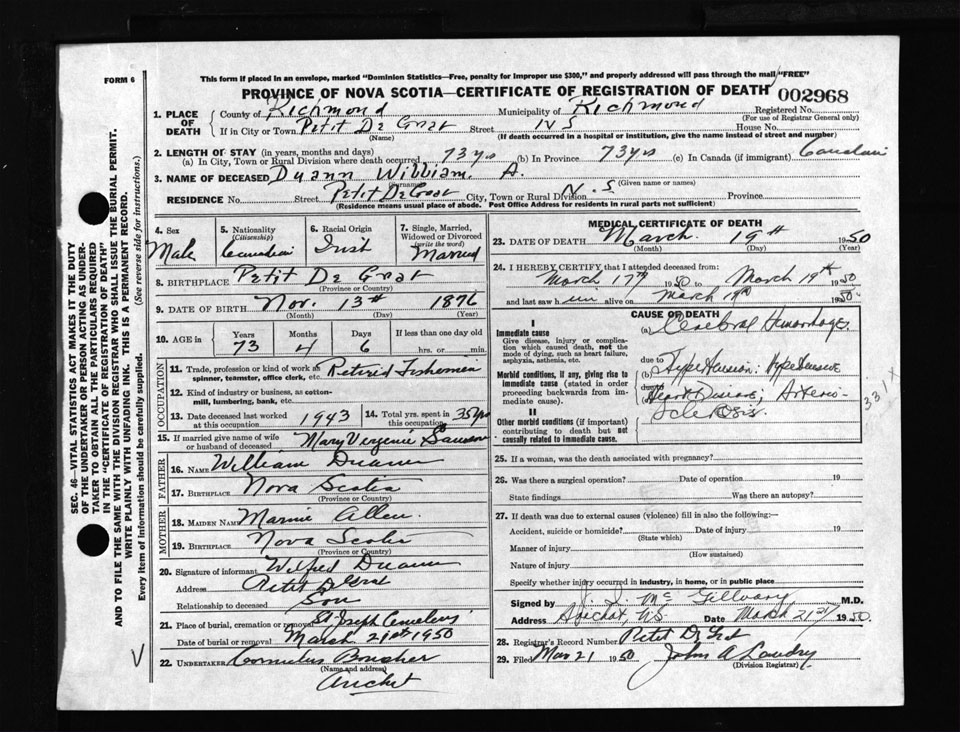 FORM 6
This form if placed in an envelope, marked "Dominion Statistics—Free, penalty for improper use $300," and properly addressed will pass through the mail "FREE"
PROVINCE OF NOVA SCOTIA—CERTIFICATE OF REGISTRATION OF DEATH 002968
1. PLACE OF DEATH County of Richmond Municipality of Richmond Registered No.
(For use of Registrar General only)
If in City or Town Petit De Grat Street N S House No.
(Name) (If death occurred in a hospital or institution, give the name instead of street and number)
2. LENGTH OF STAY (in years, months and days)
(a) In City, Town or Rural Division where death occurred 73 yrs (b) In Province 73 yrs (c) In Canada (if immigrant) Canadian
3. NAME OF DECEASED Duann William. A.
(Surname) (Given name or names)
RESIDENCE No. Street Petit De Grat City, Town or Rural Division N. S Province
(Residence means usual place of abode. Post Office Address for residents in rural parts not sufficient)
4. Sex 5. Nationality (Citizenship) 6. Racial Origin 7. Single, Married, Widowed or Divorced (write the word)
Male Canadian Irish Married
8. BIRTHPLACE Petit De Grat
(Province or Country)
9. DATE OF BIRTH Nov. 13th 1876
(Month) (Day) (Year)
10. AGE in Years Months Days If less than one day old
73 4 6 hrs. or min.
OCCUPATION
11. Trade, profession or kind of work as spinner, teamster, office clerk, etc. Retired Fishermen
12. Kind of industry or business, as cotton-mill, lumbering, bank, etc.
13. Date deceased last worked at this occupation 1943 14. Total yrs. spent in this occupation 35 yrs
15. If married give name of wife or husband of deceased Mary Vergenie Samson
FATHER
16. NAME William Duann
17. BIRTHPLACE Nova Scotia
(Province or Country)
MOTHER
18. MAIDEN NAME Marnie Allen.
19. BIRTHPLACE Nova Scotia
(Province or Country)
20. Signature of informant Wilfred Duann
Address Petit De Grat
Relationship to deceased Son
21. Place of burial, cremation or removal St Joseph Cemetery
Date of burial or removal March 21st 1950
22. UNDERTAKER Cornelius Boucher
(Name and address)
Arichat
MEDICAL CERTIFICATE OF DEATH
23. DATE OF DEATH March. 19th 1950
(Month) (Day) (Year)
24. I HEREBY CERTIFY that I attended deceased from:
March 17th 1950 to March 19th 1950
and last saw him alive on March 19th 1950
CAUSE OF DEATH
I
Immediate cause (a) Cerebral Hemorrhage.
Give disease, injury or complication which caused death, not the mode of dying, such as heart failure, asphyxia, asthenia, etc.
due to
Morbid conditions, if any, giving rise to immediate cause (stated in order proceeding backwards from immediate cause).
(b) Hypertension: Hypertensive
due to
Heart Disease; Arterio-
Sclerosis.
II
Other morbid conditions (if important) contributing to death but not causally related to immediate cause.
331X
25. If a woman, was the death associated with pregnancy?
26. Was there a surgical operation? Date of operation 19
State findings Was there an autopsy?
27. If death was due to external causes (violence) fill in also the following:—
Accident, suicide or homicide? Date of injury 19
(State which)
Manner of injury
(How sustained)
Nature of injury
Specify whether injury occurred in industry, in home, or in public place
Signed by J. J. McGillvary M.D.
Address Arichat, N.S Date March 21st 1950.
28. Registrar's Record Number Petit De Grat
29. Filed Mar 21 1950 John A Landry
(Division Registrar)
SEC. 46—VITAL STATISTICS ACT MAKES IT THE DUTY
OF THE UNDERTAKER OR PERSON ACTING AS UNDER-
TAKER TO OBTAIN ALL THE PARTICULARS REQUIRED
IN THE "CERTIFICATE OF REGISTRATION OF DEATH"
AND TO FILE THE SAME WITH THE DIVISION REGISTRAR WHO SHALL ISSUE THE BURIAL PERMIT.
WRITE PLAINLY WITH UNFADING INK. THIS IS A PERMANENT RECORD.
Every item of information should be carefully supplied. (See reverse side for instructions.)